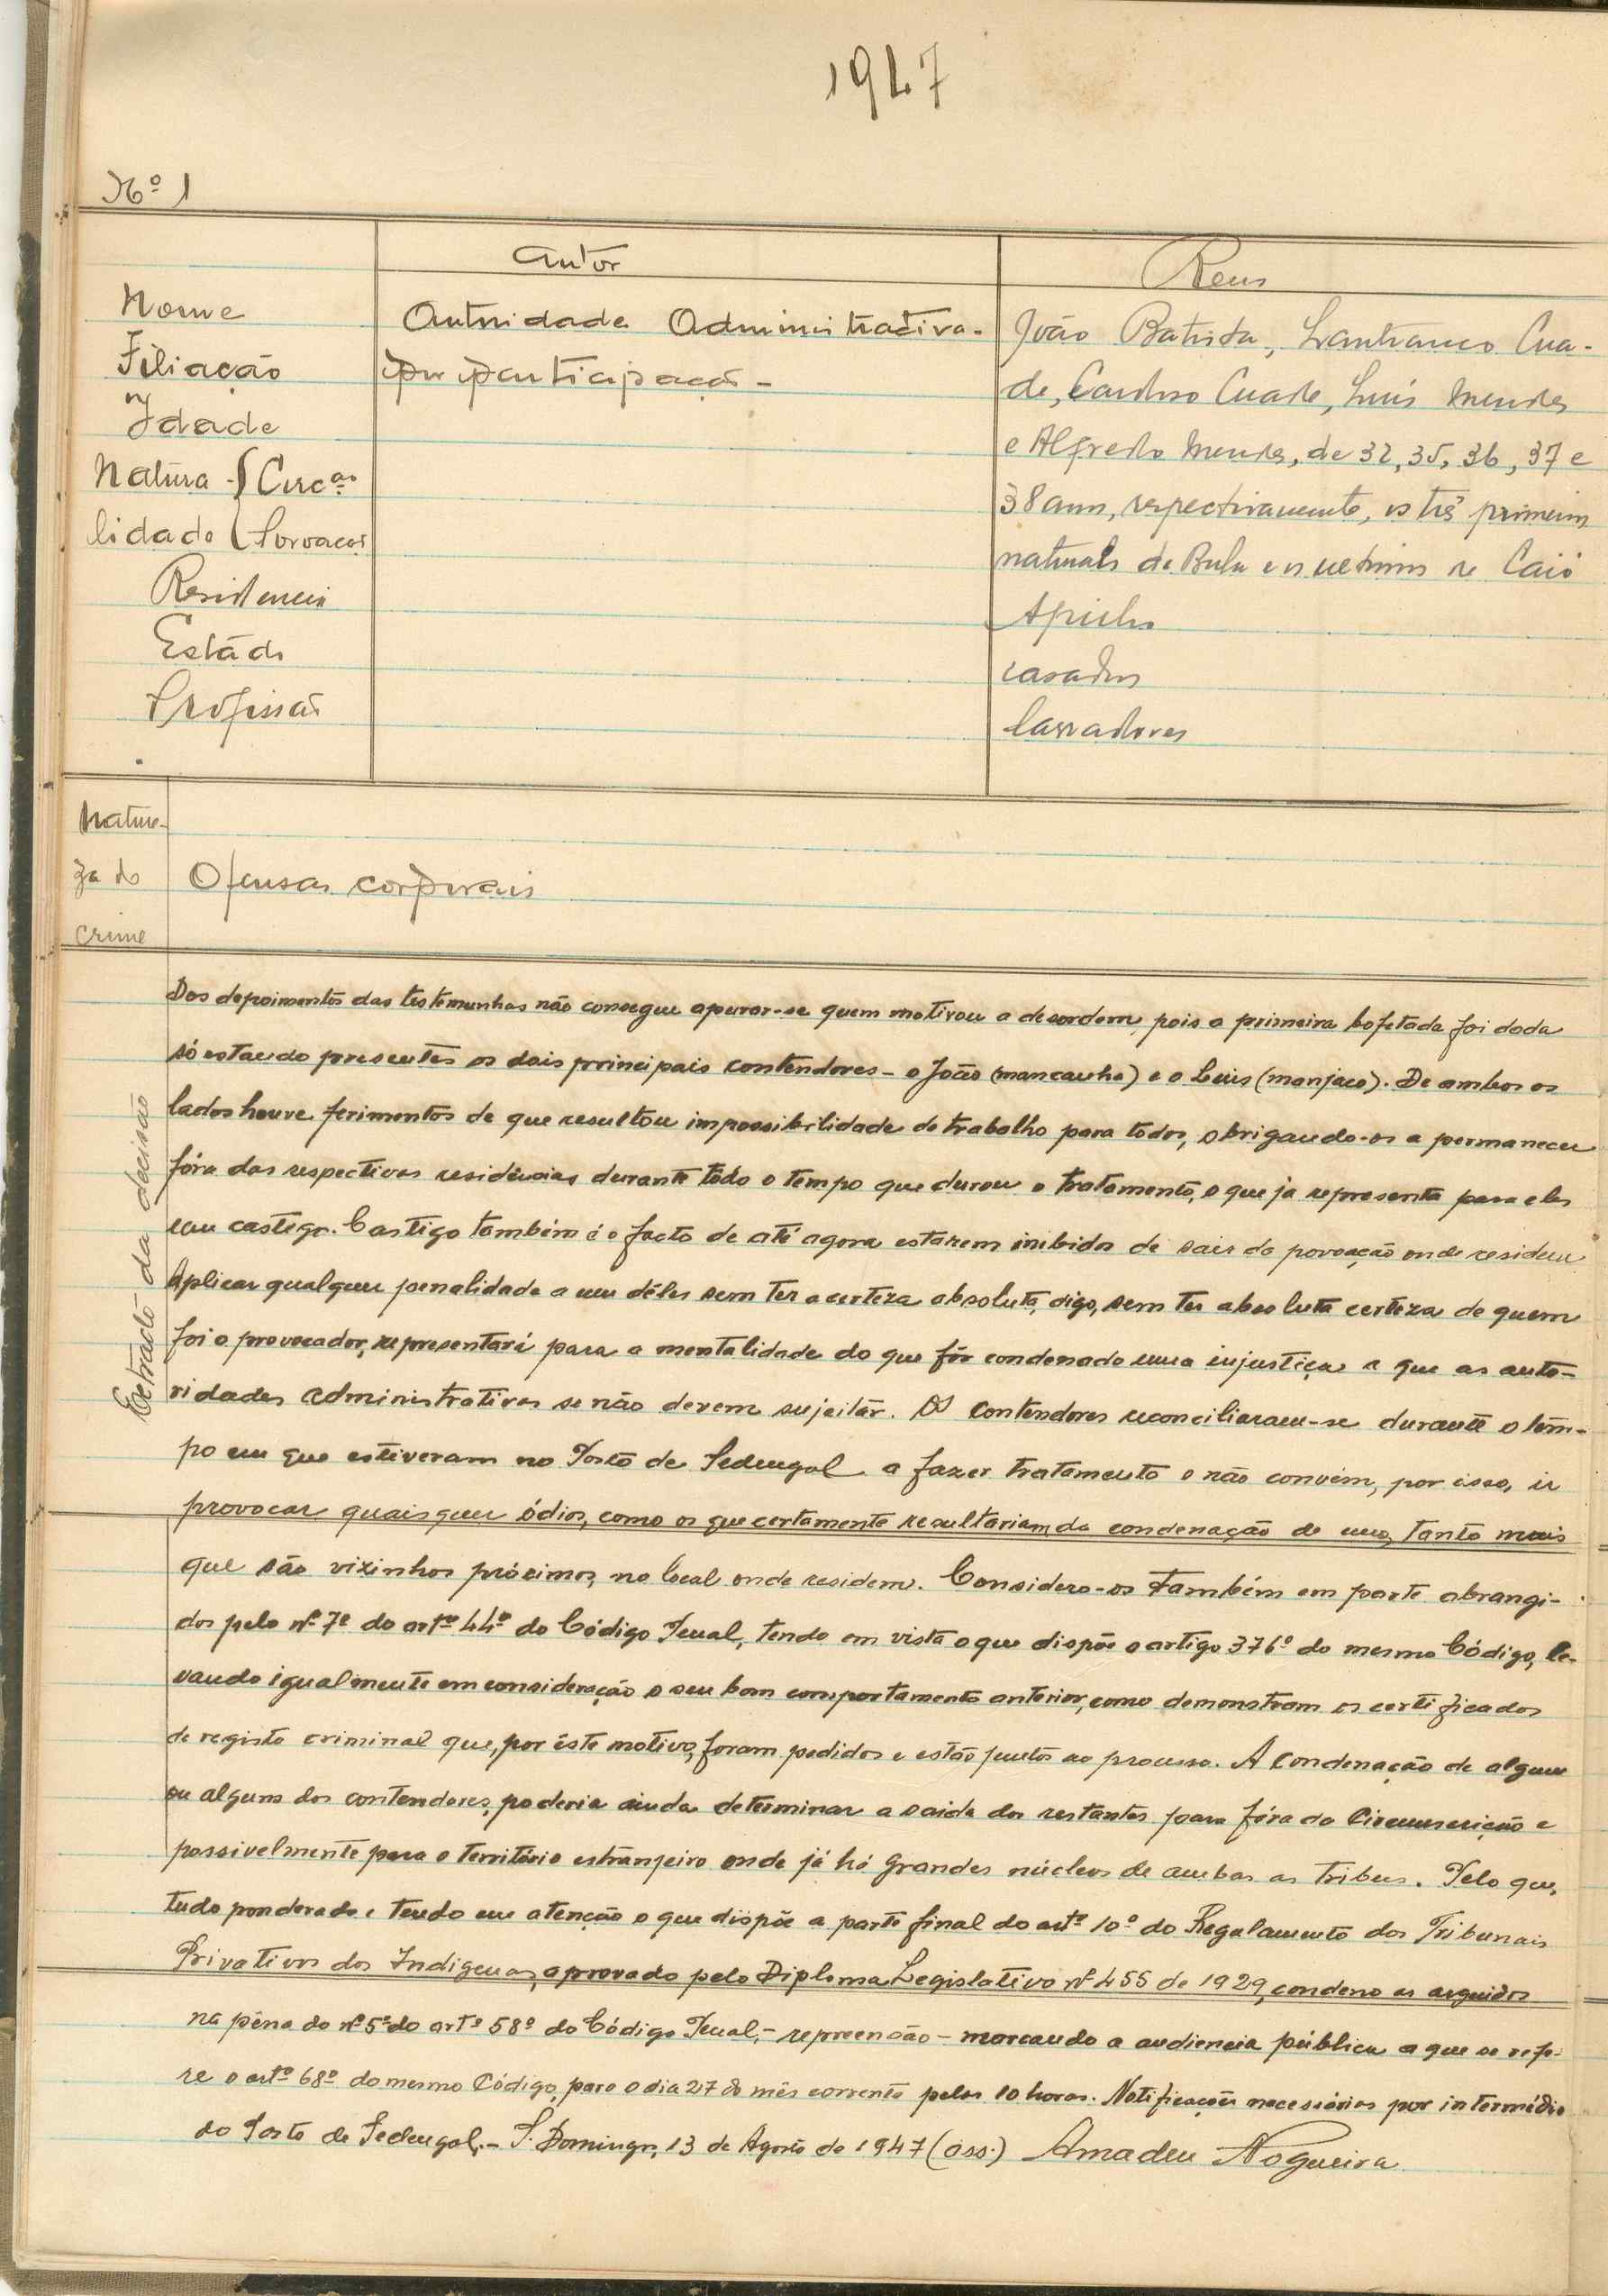 1947
Nº 1
Autor
Reus
Nome
Autoridade Administrativa-
João Batista, Lanfranco Cua-
Filiação
por participação -
de, Cardoso Cuade, Luís Mendes
Idade
e Alfredo Mendes, de 32, 35, 36, 37 e
Natura- { Circ.ão
38 anos, respectivamente, os três primeiros
lidade { Povoação
naturais de Bula e os ultimos de Caió
Residencia
Apilho
Estádo
casados
Profissão
lavradores
Nature-
za do
Ofensas corporais
crime
Extracto da decisão
Dos depoimentos das testemunhas não consegue apurar-se quem motivou a desordem, pois a primeira bofetada foi dada
só estando presentes os dois principais contendores - o João (mancanha) e o Luis (manjaco). De ambos os
lados houve ferimentos de que resultou impossibilidade de trabalho para todos, obrigando-os a permanecer
fóra das respectivas residências durante todo o tempo que durou o tratamento, o que ja representa para eles
um castigo. Castigo também é o facto de até agora estarem inibidos de sair da povoação onde residem
Aplicar qualquer penalidade a um dêles sem ter a certeza absoluta, digo, sem ter absoluta certeza de quem
foi o provocador, representará para a mentalidade do que fôr condenado uma injustiça a que as auto-
ridades administrativas se não devem sujeitar. Os contendores reconciliaram-se durante o tem-
po em que estiveram no Posto de Sedengal a fazer tratamento e não convém, por isso, ir
provocar quaisquer ódios, como os que certamente resultariam da condenação de uns, tanto mais
que são vizinhos próximos, no local onde residem. Considero-os também em parte abrangi-
dos pelo nº 7º do artº 44º do Código Penal, tendo em vista o que dispõe o artigo 376º do mesmo Código, le-
vando igualmente em consideração o seu bom comportamento anterior, como demonstram os certificados
de registo criminal que, por êste motivo, foram pedidos e estão juntos ao processo. A condenação de algum
ou alguns dos contendores, poderia ainda determinar a saida dos restantes para fóra da Circunscrição e
possivelmente para o território estranjeiro onde já há grandes núcleos de ambas as tribus. Pelo que,
tudo ponderado e tendo em atenção o que dispõe a parte final do artº 10º do Regulamento dos Tribunais
Privativos dos Indigenas, aprovado pelo Diploma Legislativo nº 455 de 1929, condeno os arguidos
na pêna do nº 5º do artº 58º do Código Penal, - repreensão - marcando a audiencia pública a que se refe-
re o artº 68º do mesmo Código, para o dia 27 do mês corrente pelas 10 horas. Notificações necessárias por intermédio
do Posto de Sedengal. - S. Domingos, 13 de Agosto de 1947 (ass.) Amadeu Nogueira